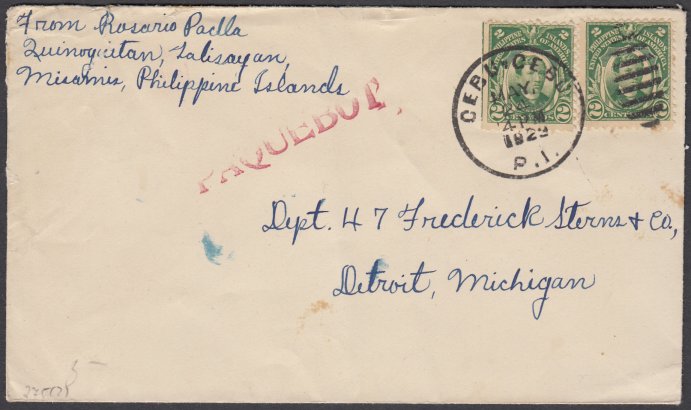 From Rosario Padlla
Quinoguitan, Salisayan,
Misamis, Philippine Islands
PAQUEBOT
CEBU, CEBU
MAY
4 PM
1923
P.I.
PHILIPPINE ISLANDS
UNITED STATES OF AMERICA
2 CENTAVOS 2
PHILIPPINE ISLANDS
UNITED STATES OF AMERICA
2 CENTAVOS 2
Dept. 47 Frederick Sterns & Co,
Detroit, Michigan